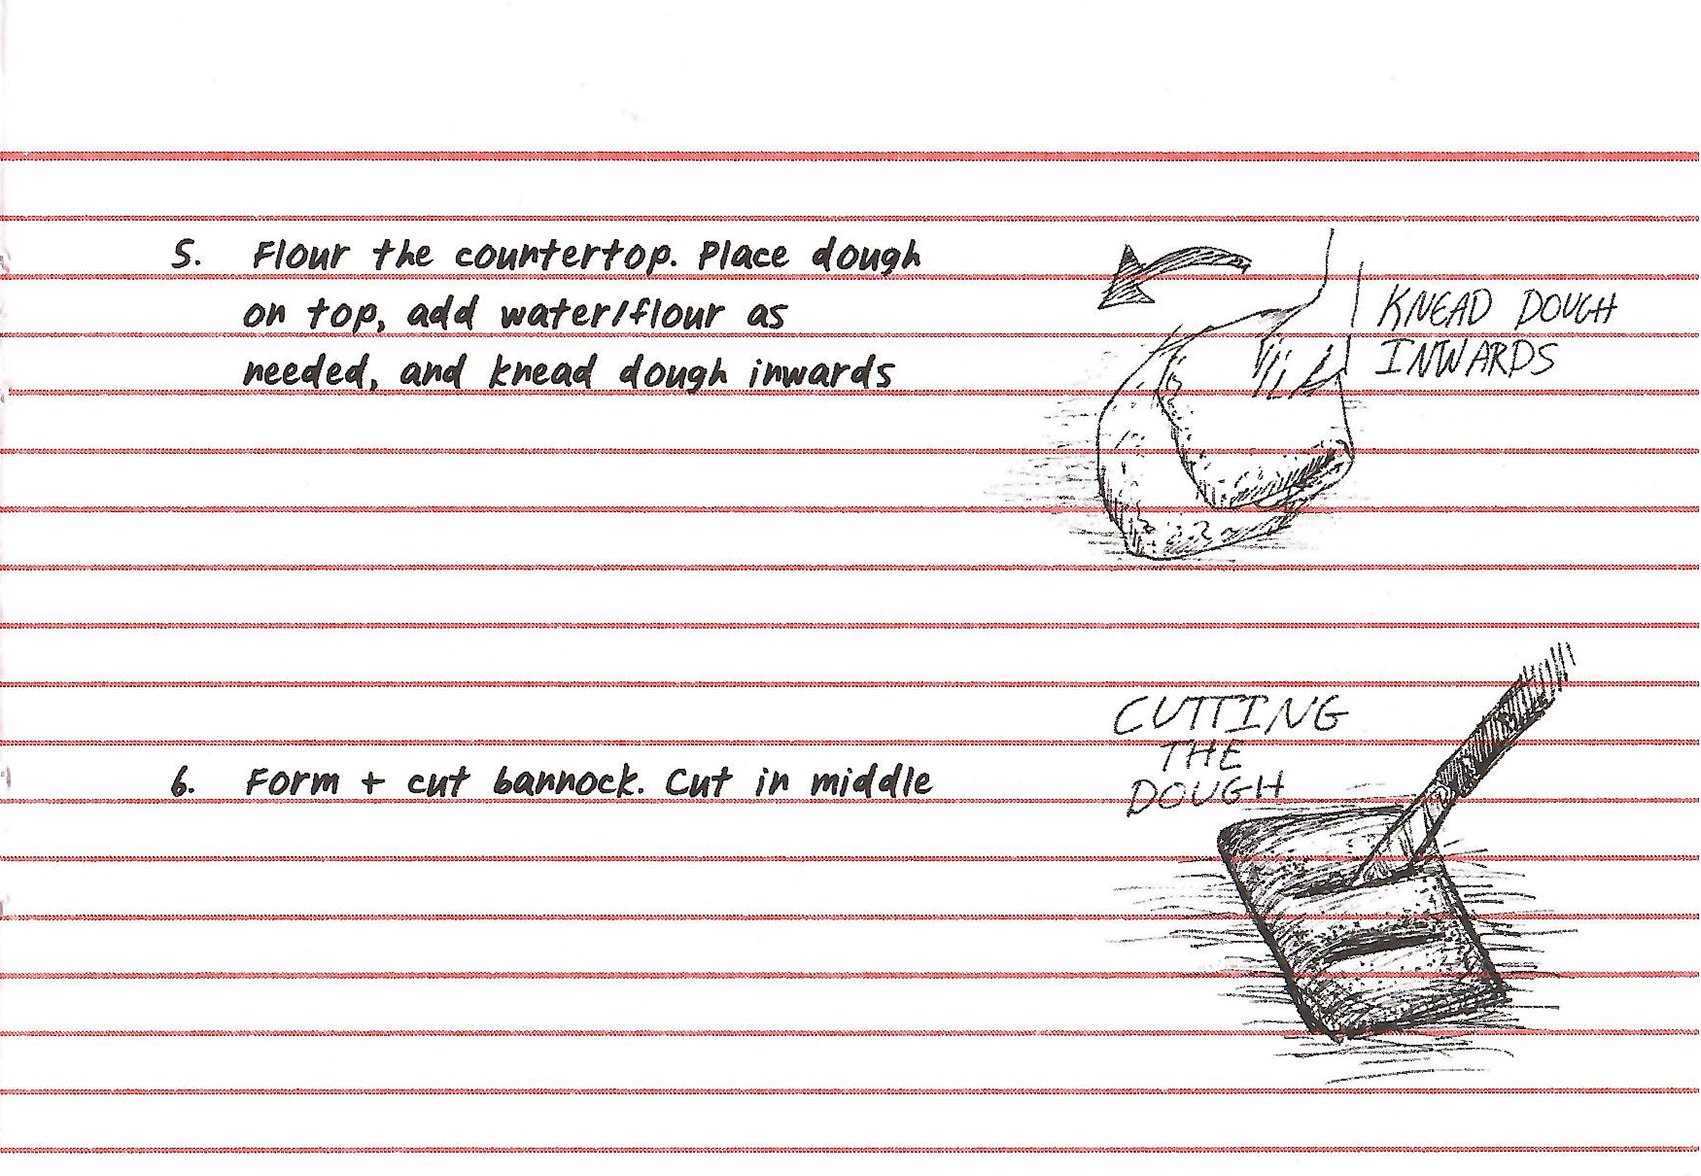 5. Flour the countertop. Place dough
on top, add water/flour as
needed, and knead dough inwards
KNEAD DOUGH
INWARDS
6. Form + cut bannock. Cut in middle
CUTTING
THE
DOUGH